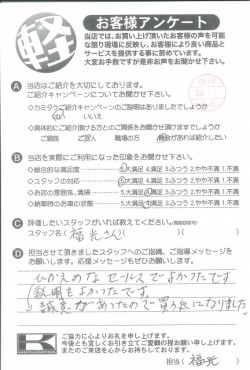 軽
お客様アンケート
当店では、お買い上げ頂いたお客様の声を可能
な限り現場に反映し、お客様により良い商品と
サービスを提供する事に努めています。
大変お手数ですが是非お声をお聞かせ下さい。
A 当店はご紹介を大切にしております。
ご紹介キャンペーンについてお聞かせ下さい。
◇カミタケご紹介キャンペーンのご説明はありましたでしょうか
はい いいえ
◇具体的にご紹介頂ける方とのご関係をお聞かせ頂けますでしょうか
家族 親戚 職場の方 ご友人 機会があれば紹介したい
B 当店を実際にご利用になった印象をお聞かせ下さい。
◇総合的な満足度 5.大満足 4.満足 3.ふつう 2.やや不満 1.不満
◇スタッフの対応 5.大満足 4.満足 3.ふつう 2.やや不満 1.不満
◇お店の雰囲気、清掃 5.大満足 4.満足 3.ふつう 2.やや不満 1.不満
◇納車時のお車の状態 5.大満足 4.満足 3.ふつう 2.やや不満 1.不満
C 評価したいスタッフがいれば教えてください。
スタッフ名( 福光さん )( )
D 担当させて頂きましたスタッフへのご指摘、ご指導メッセージを
お願いします。応援メッセージもぜひお願いします。
ひかえめなセールスでよかったです
説明もよかったです
誠実があったので買う気になりました
ご協力に心よりお礼を申し上げます。
今後とも宜しくお引き立てご愛顧の程お願い申し上げます。
またのご来店を心からお待ちしております。
担当( 福光 )